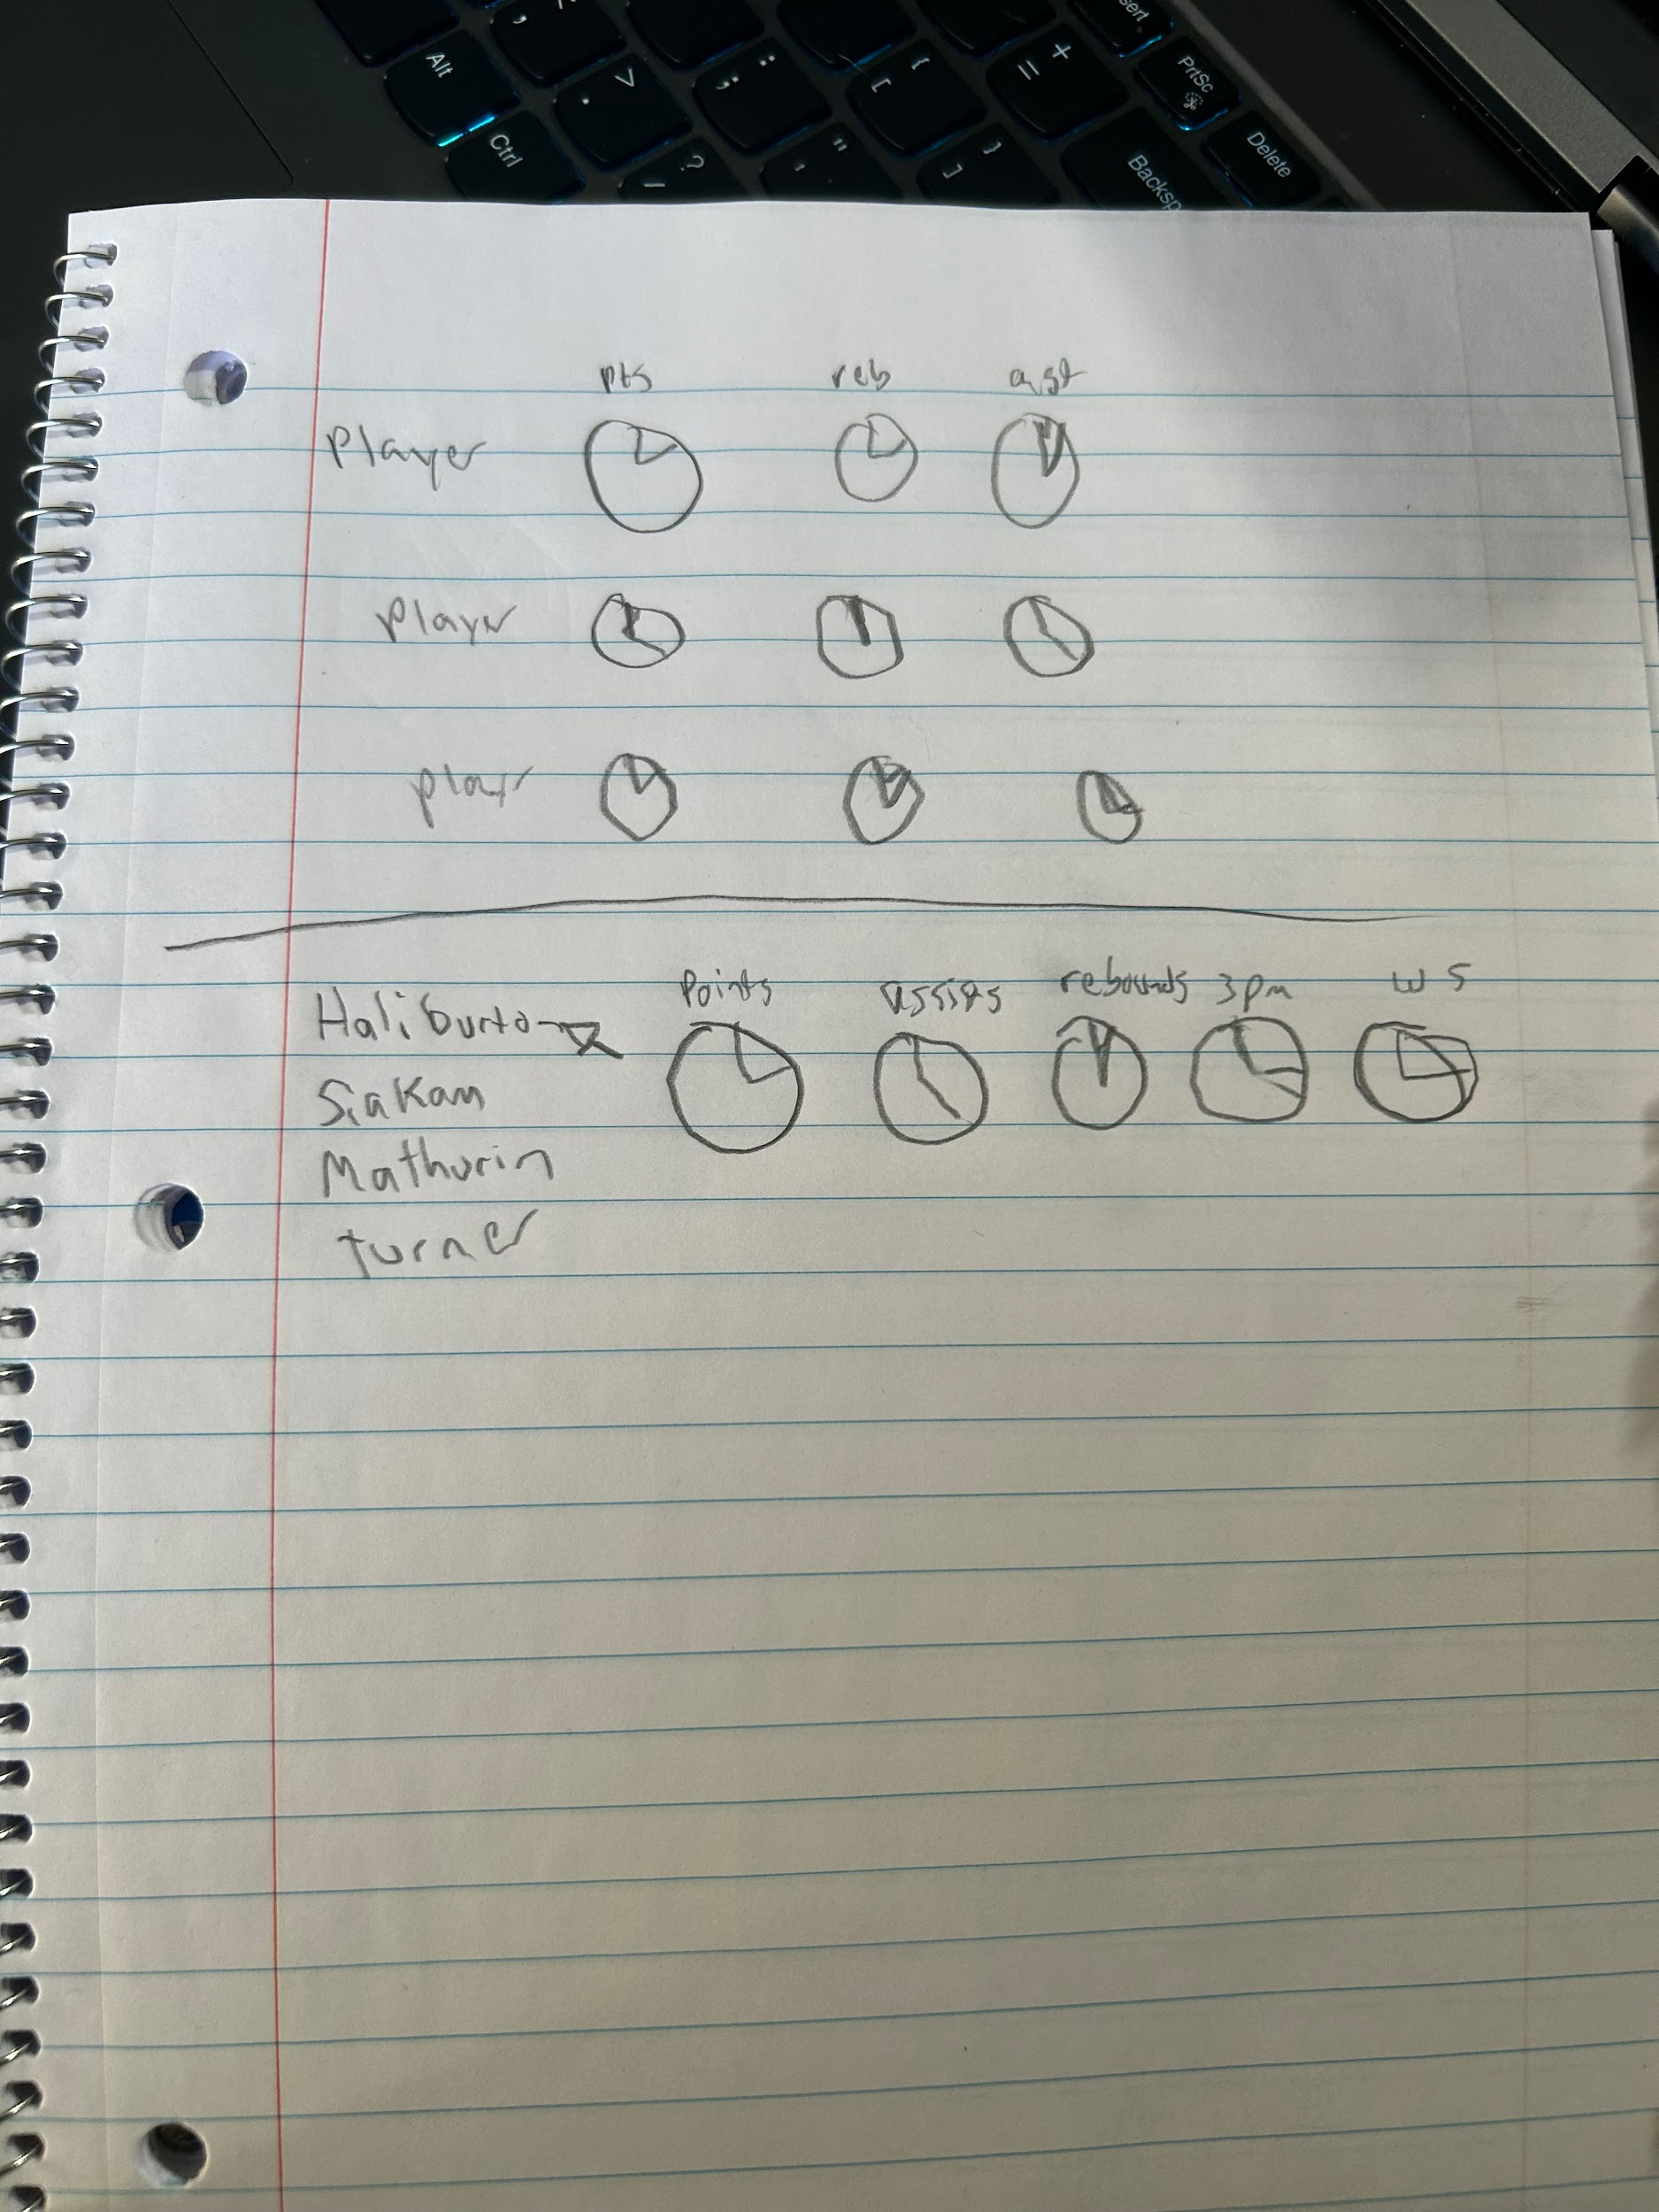 Alt
Ctrl
PrtSc
Delete
Backsp
pts reb ast
Player
Player
Points assists rebounds 3pm WS
Haliburton
Siakam
Mathurin
turner